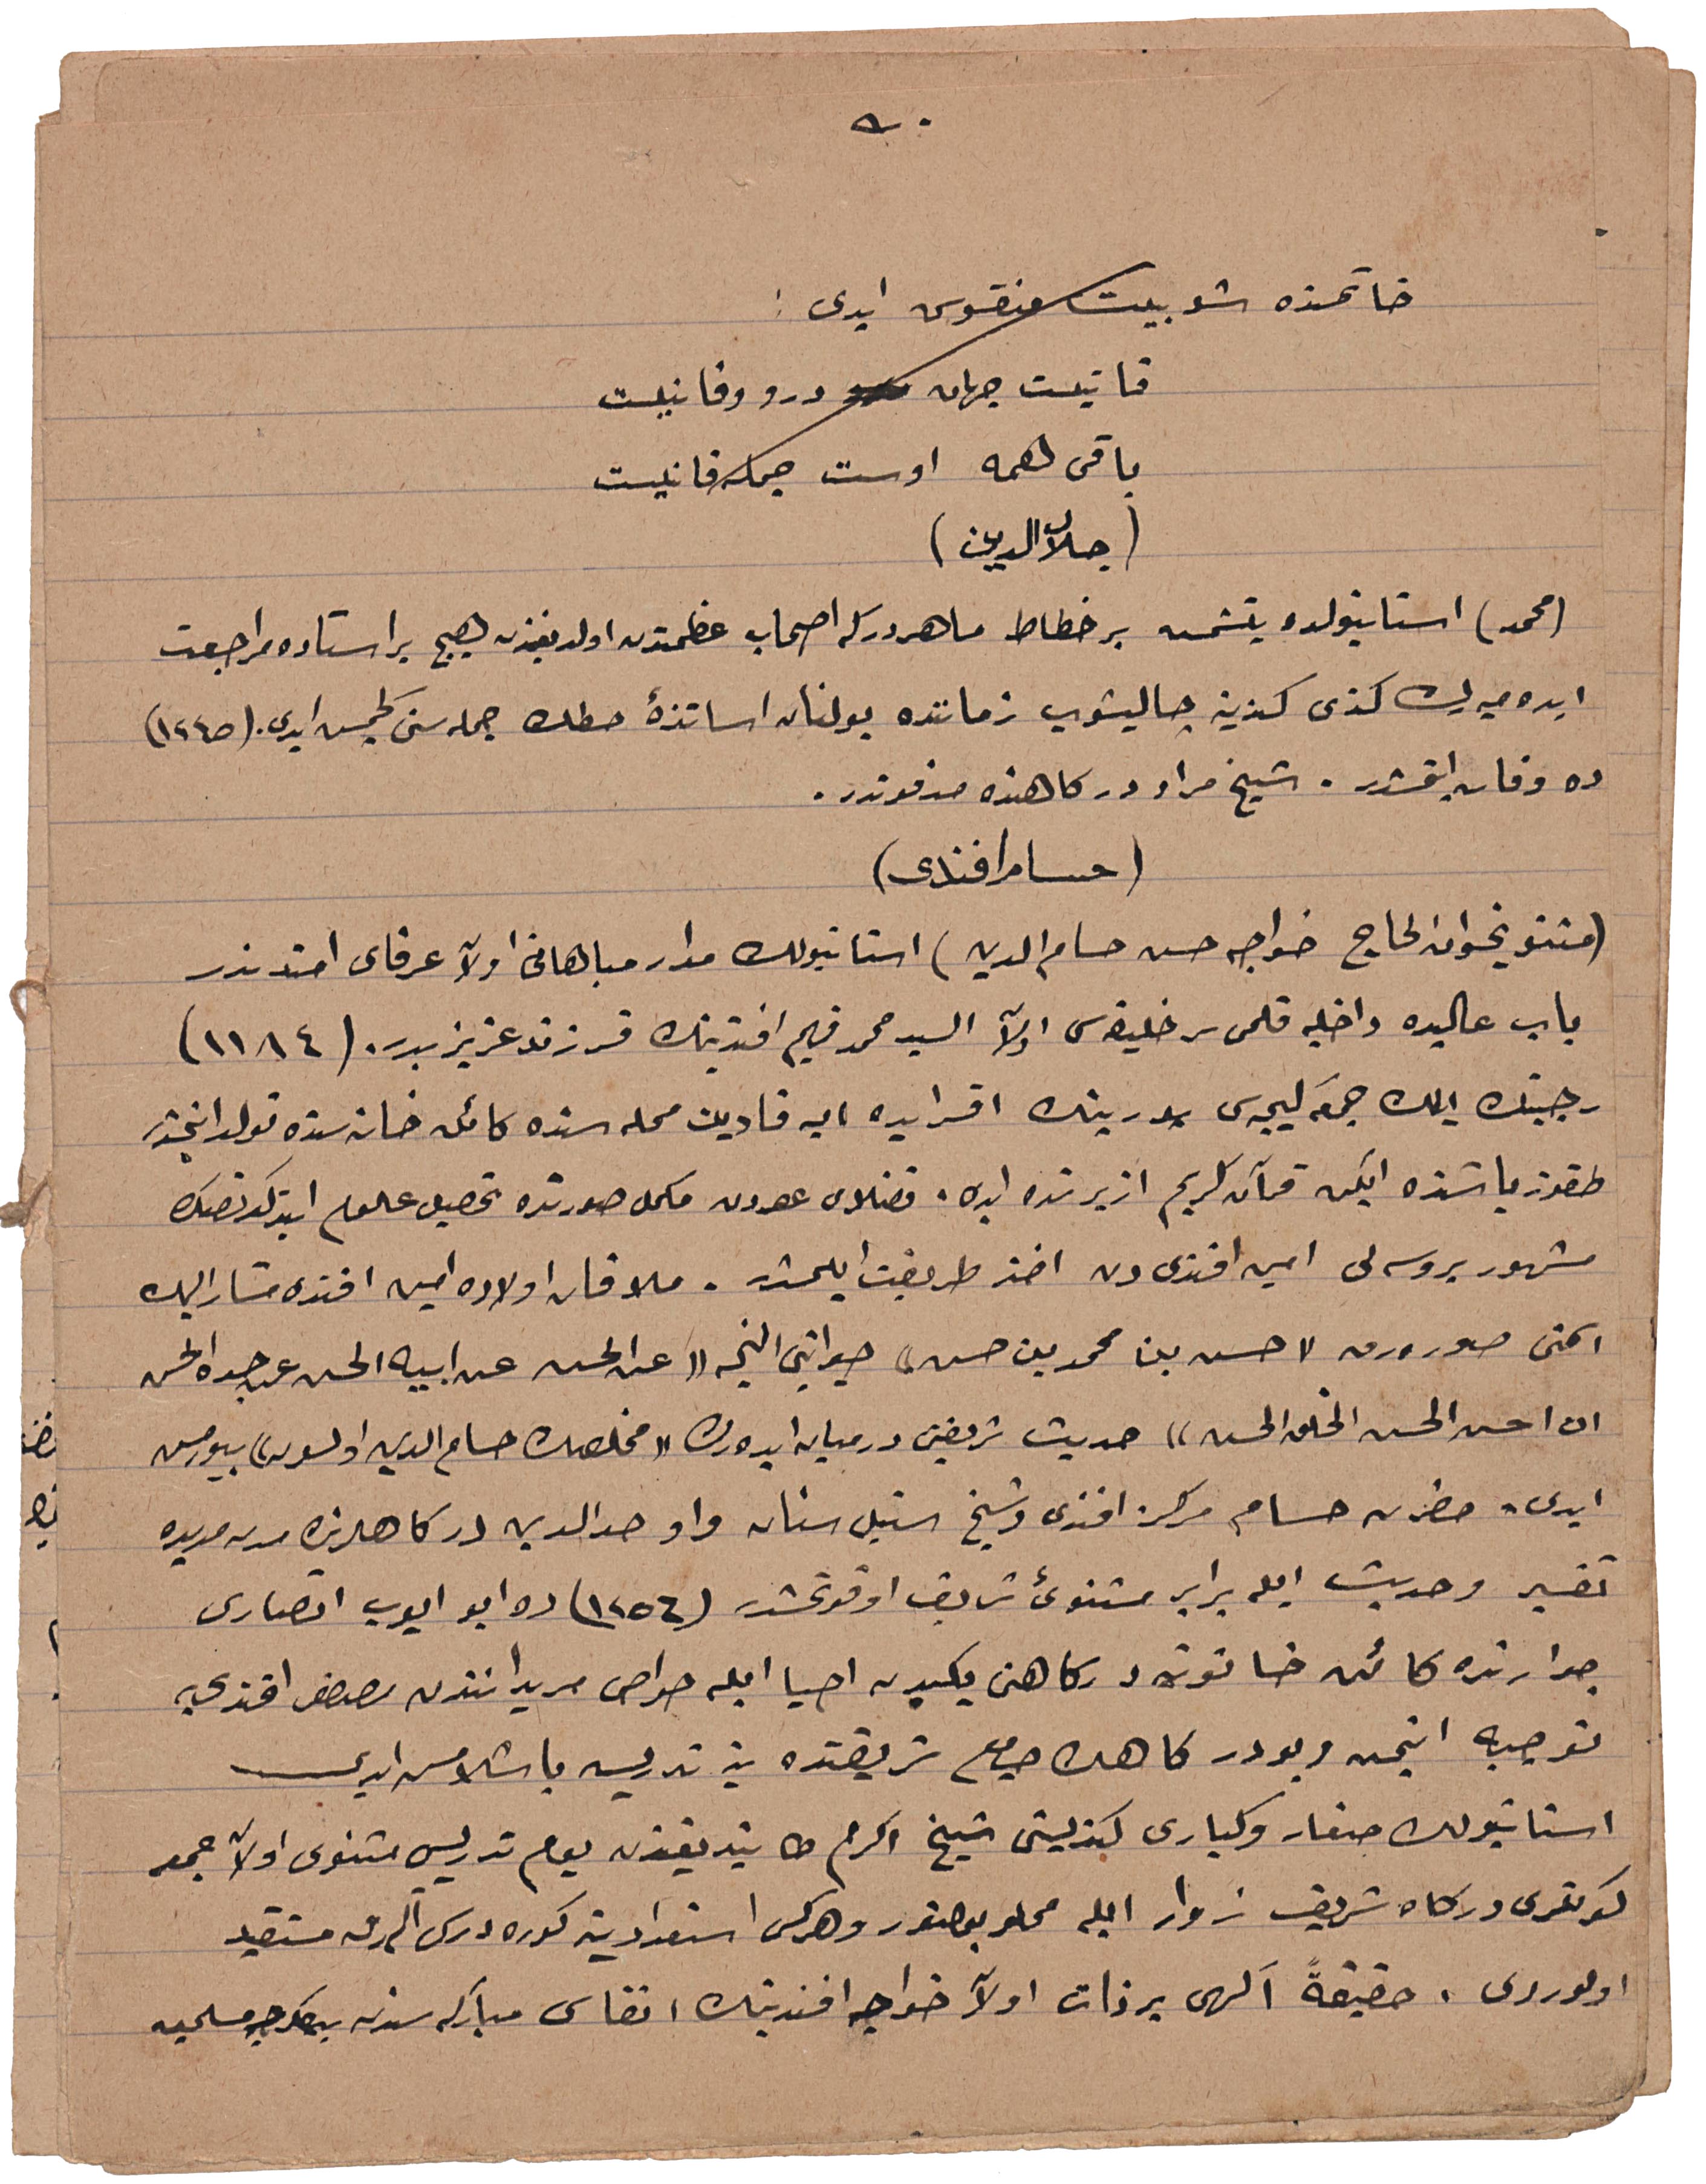 ٦٠
خاتمنده شو بیت منقوس ایدی :
فانیست جهان درو وفا نیست
باقی همه اوست جمله فانیست
(جلال الدین)
(محمد) استانبولده یتشمش بر خطاط ماهردركه اصحاب عظمتدن اولدیغندن هیچ بر استاده مراجعت
ایده میه رك كندی كندینه چالیشوب زماننده بولنان اساتذۀ خطك جمله سنی كچمش ایدی. (١٢٤٥)
ده وفات ایتمشدر . شیخ مراد دركاهنده مدفوندر .
(حسام افندی)
(مثنویخوان الحاج خواجه حسن حسام الدین) استانبولك مدار مباهاتی اولان عرفای امتدندر
باب عالیده داخلیه قلمی سر خلیفه سی اولان السید محمد فهیم افندینك فرزند عزیزیدر. (١١٨٤)
رجبنك ایلك جمعه كیجه سی پدرینك اقسرایده ابه قادین محله سنده كائن خانه سنده تولد ایتمشدر
طقوز یاشنده ایكن قرآن كریم ازبرنده ایدی . فضلای عصردن مكمل صورتده تحصیل علوم ایتدكدنصكره
مشهور بروسه لی امین افندی دن اخذ طریقت ایلمشدر . ملاقات اولاده امین افندی مشار الیهك
اسمنی صورەرق « حسن بن محمد بن حسن » جوابنی النجه « عن الحسن عن ابیه الحسن عن جده الحسن
ان احسن الحسن الخلق الحسن » حدیث شریفنی درمیان ایدەرك « مخلصك حسام الدین اولسون » بیورمش
ایدی . حضرت حسام مركز افندی و شیخ سنبل سنان و اوحدالدین دركاهلرنده مدت مدیده
تفسیر و حدیث ایله برابر مثنوئ شریف اوقوتمشدر (١٢٥٤) ده ابو ایوب انصاری
جوارنده كائن خاتونیه دركاهنی یكیدن احیا ایله خواص مریداننندن مصطفی افندی یه
توجیه ایتمش و بو دركاهك جامع شریفنده ینه تدریسه باشلامش ایدی
استانبولك صغار و كباری كندیسنی شیخ اكرم طانیدیغندن یوم تدریس مثنوی اولان جمعه
كونلری دركاه شریف زوار ایله مملو بولنور و هركس استعدادینه كوره درس آله رق مستفید
اولوردی . حقیقةً الهی بر ذات اولان خواجه افندینك انفاس مباركه سندن بیكلرجه مسلمین